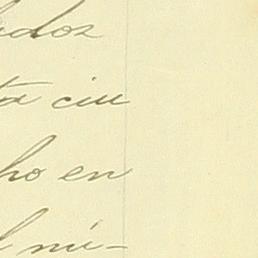 idos
ta ciu
ho en
l mi-